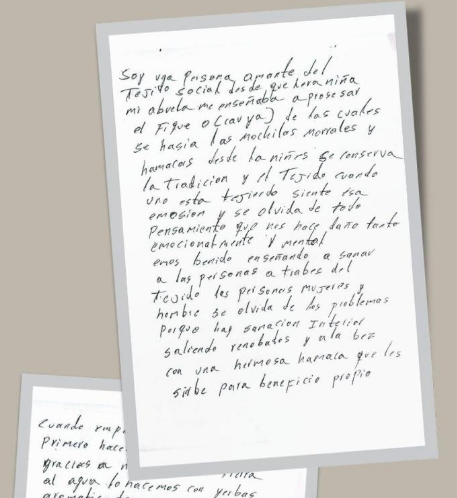 Soy uga persona amante del
Tejido social desde que hera niña
mi abuela me enseñaba aprosesar
el Fique o (cavya) de las cuales
se hasia las mochilas morrales y
hamacas desde la niñes se conserva
la Tradicion y el Tejido cuando
uno esta tejiendo siente esa
emosion y se olvida de todo
pensamiento que nos hace daño tanto
emocionalmente y mental
emos benido enseñando a sanar
a las personas a trabes del
Tejido las personas mujeres y
hombre se olvida de los problemas
porque hay sanacion Interior
saliendo renobados y ala bez
con una hermosa hamaca que les
sirbe para beneficio propio
cuando
Primero hace
gracias a
al agua lo hacemos con yerbas